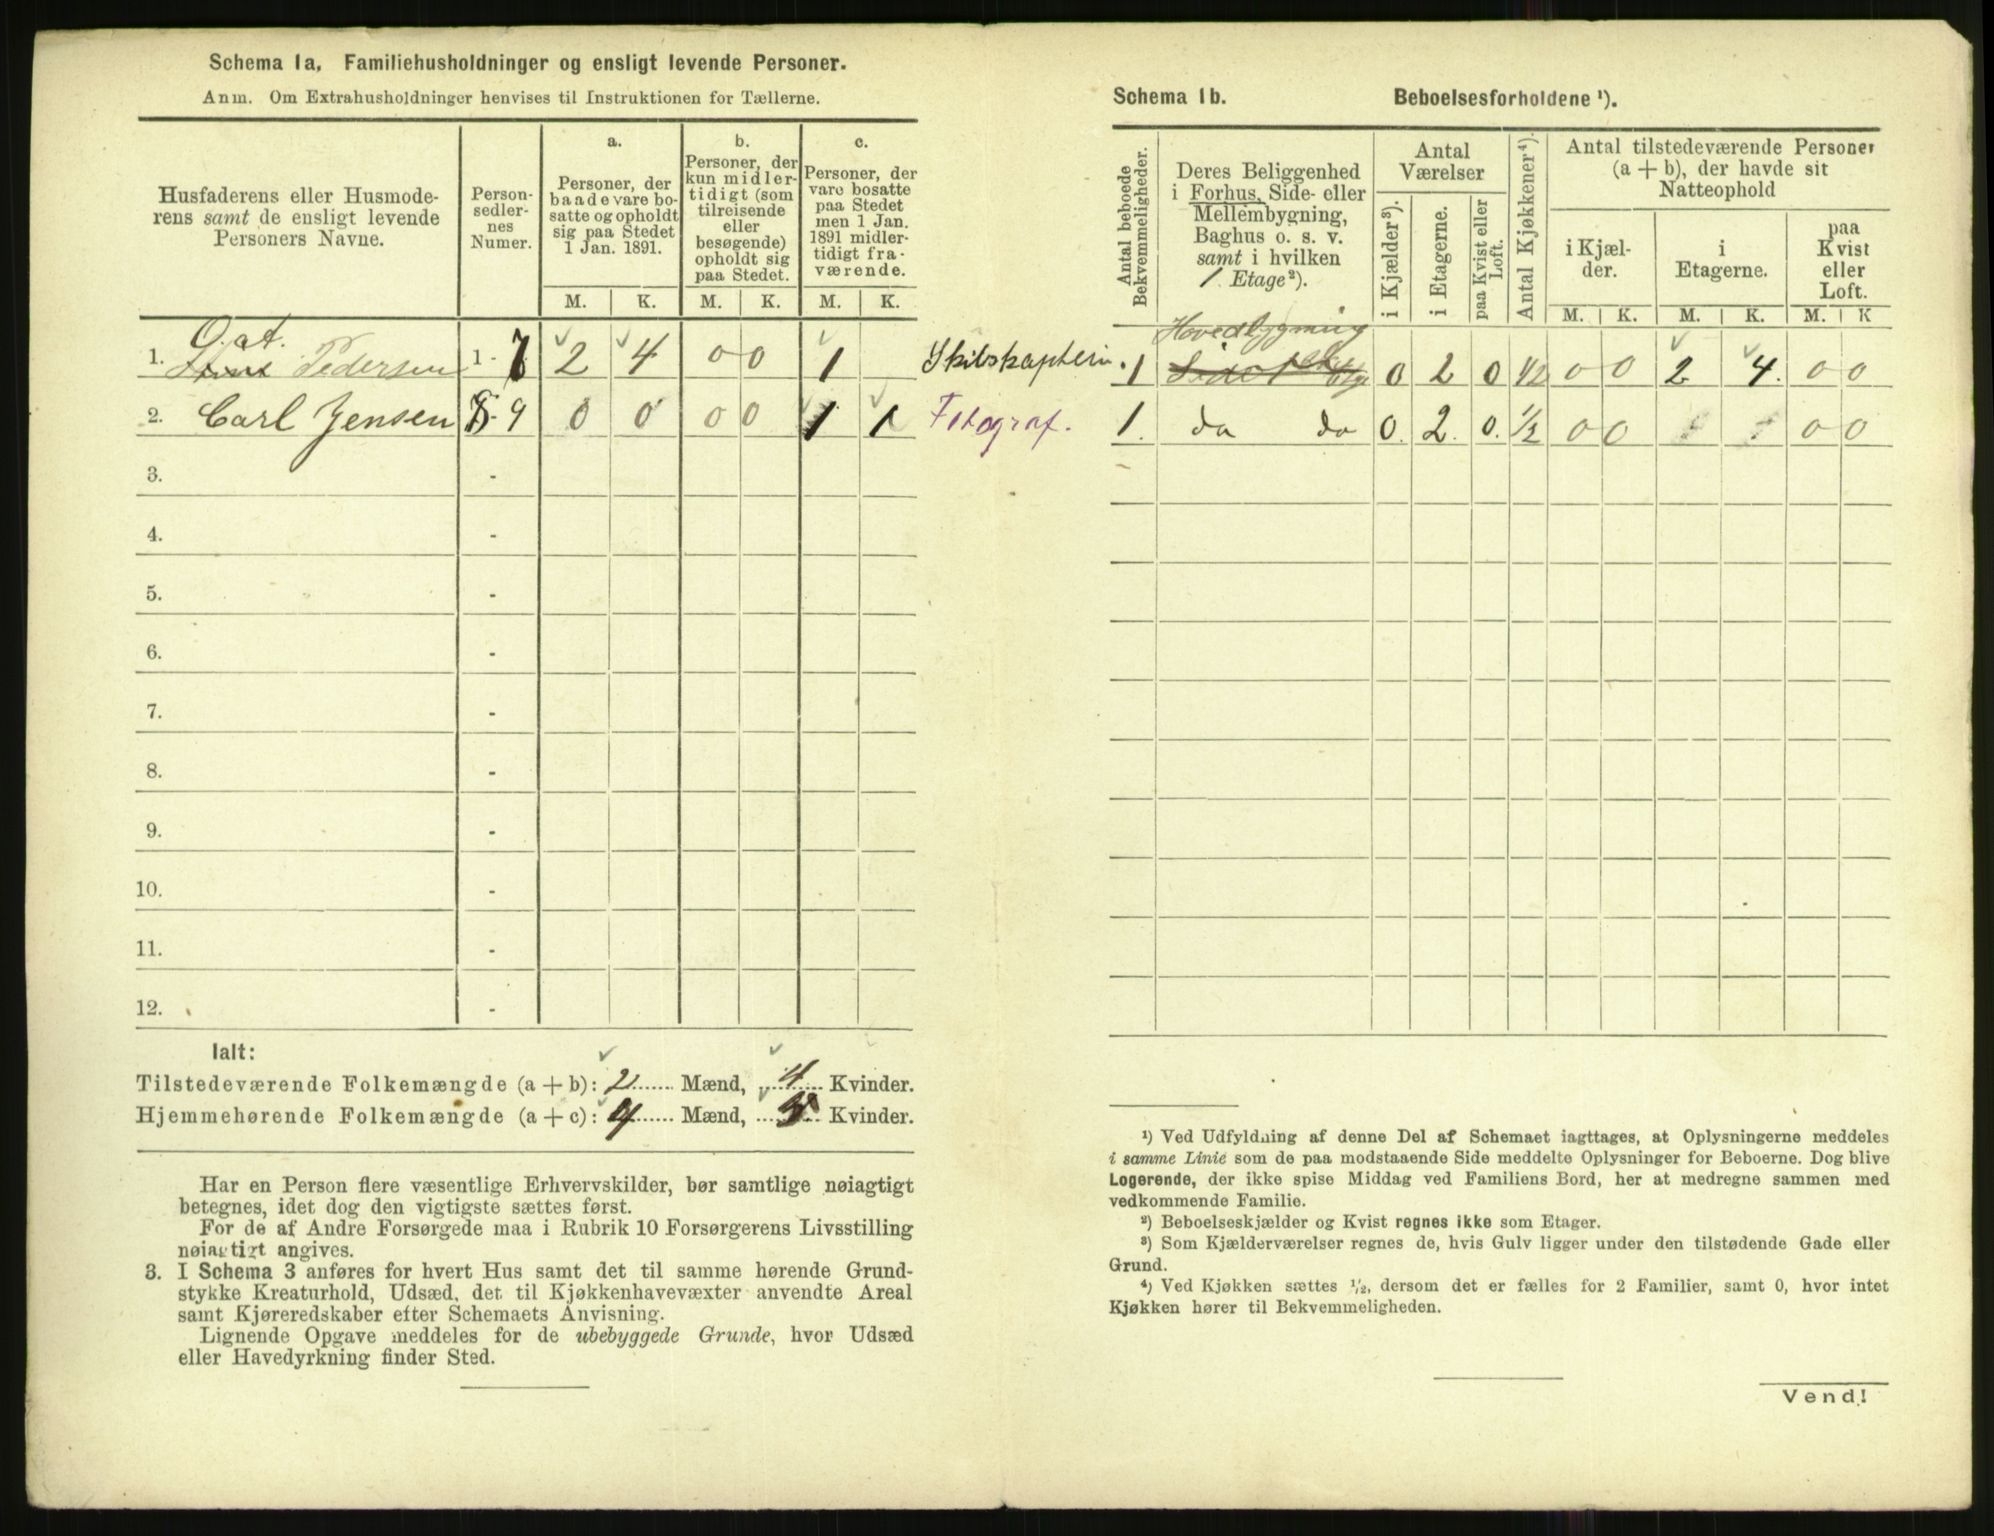 Schema 1a. Familiehusholdninger og ensligt levende Personer.
Anm. Om Extrahusholdninger henvises til Instruktionen for Tællerne.
Husfaderens eller Husmode-
rens samt de ensligt levende
Personers Navne.
Person-
sedler-
nes
Numer.
a.
Personer, der
baade vare bo-
satte og opholdt
sig paa Stedet
1 Jan. 1891.
b.
Personer, der
kun midler-
tidigt (som
tilreisende
eller
besøgende)
opholdt sig
paa Stedet.
c.
Personer, der
vare bosatte
paa Stedet
men 1 Jan.
1891 midler-
tidigt fra-
værende.
M. K. M. K. M. K.
1. Pedersen 1 - 7 2 4 0 0 1
2. Carl Jensen 8 - 9 0 0 0 0 1 1 Fotograf.
3. -
4. -
5. -
6. -
7. -
8. -
9. -
10. -
11. -
12. -
Ialt:
Tilstedeværende Folkemængde (a + b): 2 Mænd, 4 Kvinder.
Hjemmehørende Folkemængde (a + c): 4 Mænd, Kvinder.
Har en Person flere væsentlige Erhvervskilder, bør samtlige nøiagtigt
betegnes, idet dog den vigtigste sættes først.
For de af Andre Forsørgede maa i Rubrik 10 Forsørgerens Livsstilling
nøiagtigt angives.
3. I Schema 3 anføres for hvert Hus samt det til samme hørende Grund-
stykke Kreaturhold, Udsæd, det til Kjøkkenhavevæxter anvendte Areal
samt Kjøreredskaber efter Schemaets Anvisning.
Lignende Opgave meddeles for de ubebyggede Grunde, hvor Udsæd
eller Havedyrkning finder Sted.
Schema 1b. Beboelsesforholdene ¹).
Antal beboede
Bekvemmeligheder.
Deres Beliggenhed
i Forhus, Side- eller
Mellembygning,
Baghus o. s. v.
samt i hvilken
1. Etage²).
Antal
Værelser
i Kjælder³).
i Etagerne.
paa Kvist eller
Loft.
Antal Kjøkkener⁴).
Antal tilstedeværende Personer
(a + b), der havde sit
Natteophold
i Kjæl-
der.
i
Etagerne.
paa
Kvist
eller
Loft.
M. K. M. K. M. K
Hovedbygning
1 0 2 0 1/2 0 0 2 4. 0 0
1. do do 0. 2. 0. 1/2 0 0 0 0
¹) Ved Udfyldning af denne Del af Schemaet iagttages, at Oplysningerne meddeles
i samme Linie som de paa modstaaende Side meddelte Oplysninger for Beboerne. Dog blive
Logerende, der ikke spise Middag ved Familiens Bord, her at medregne sammen med
vedkommende Familie.
²) Beboelseskjælder og Kvist regnes ikke som Etager.
³) Som Kjælderværelser regnes de, hvis Gulv ligger under den tilstødende Gade eller
Grund.
⁴) Ved Kjøkken sættes ½, dersom det er fælles for 2 Familier, samt 0, hvor intet
Kjøkken hører til Bekvemmeligheden.
Vend!